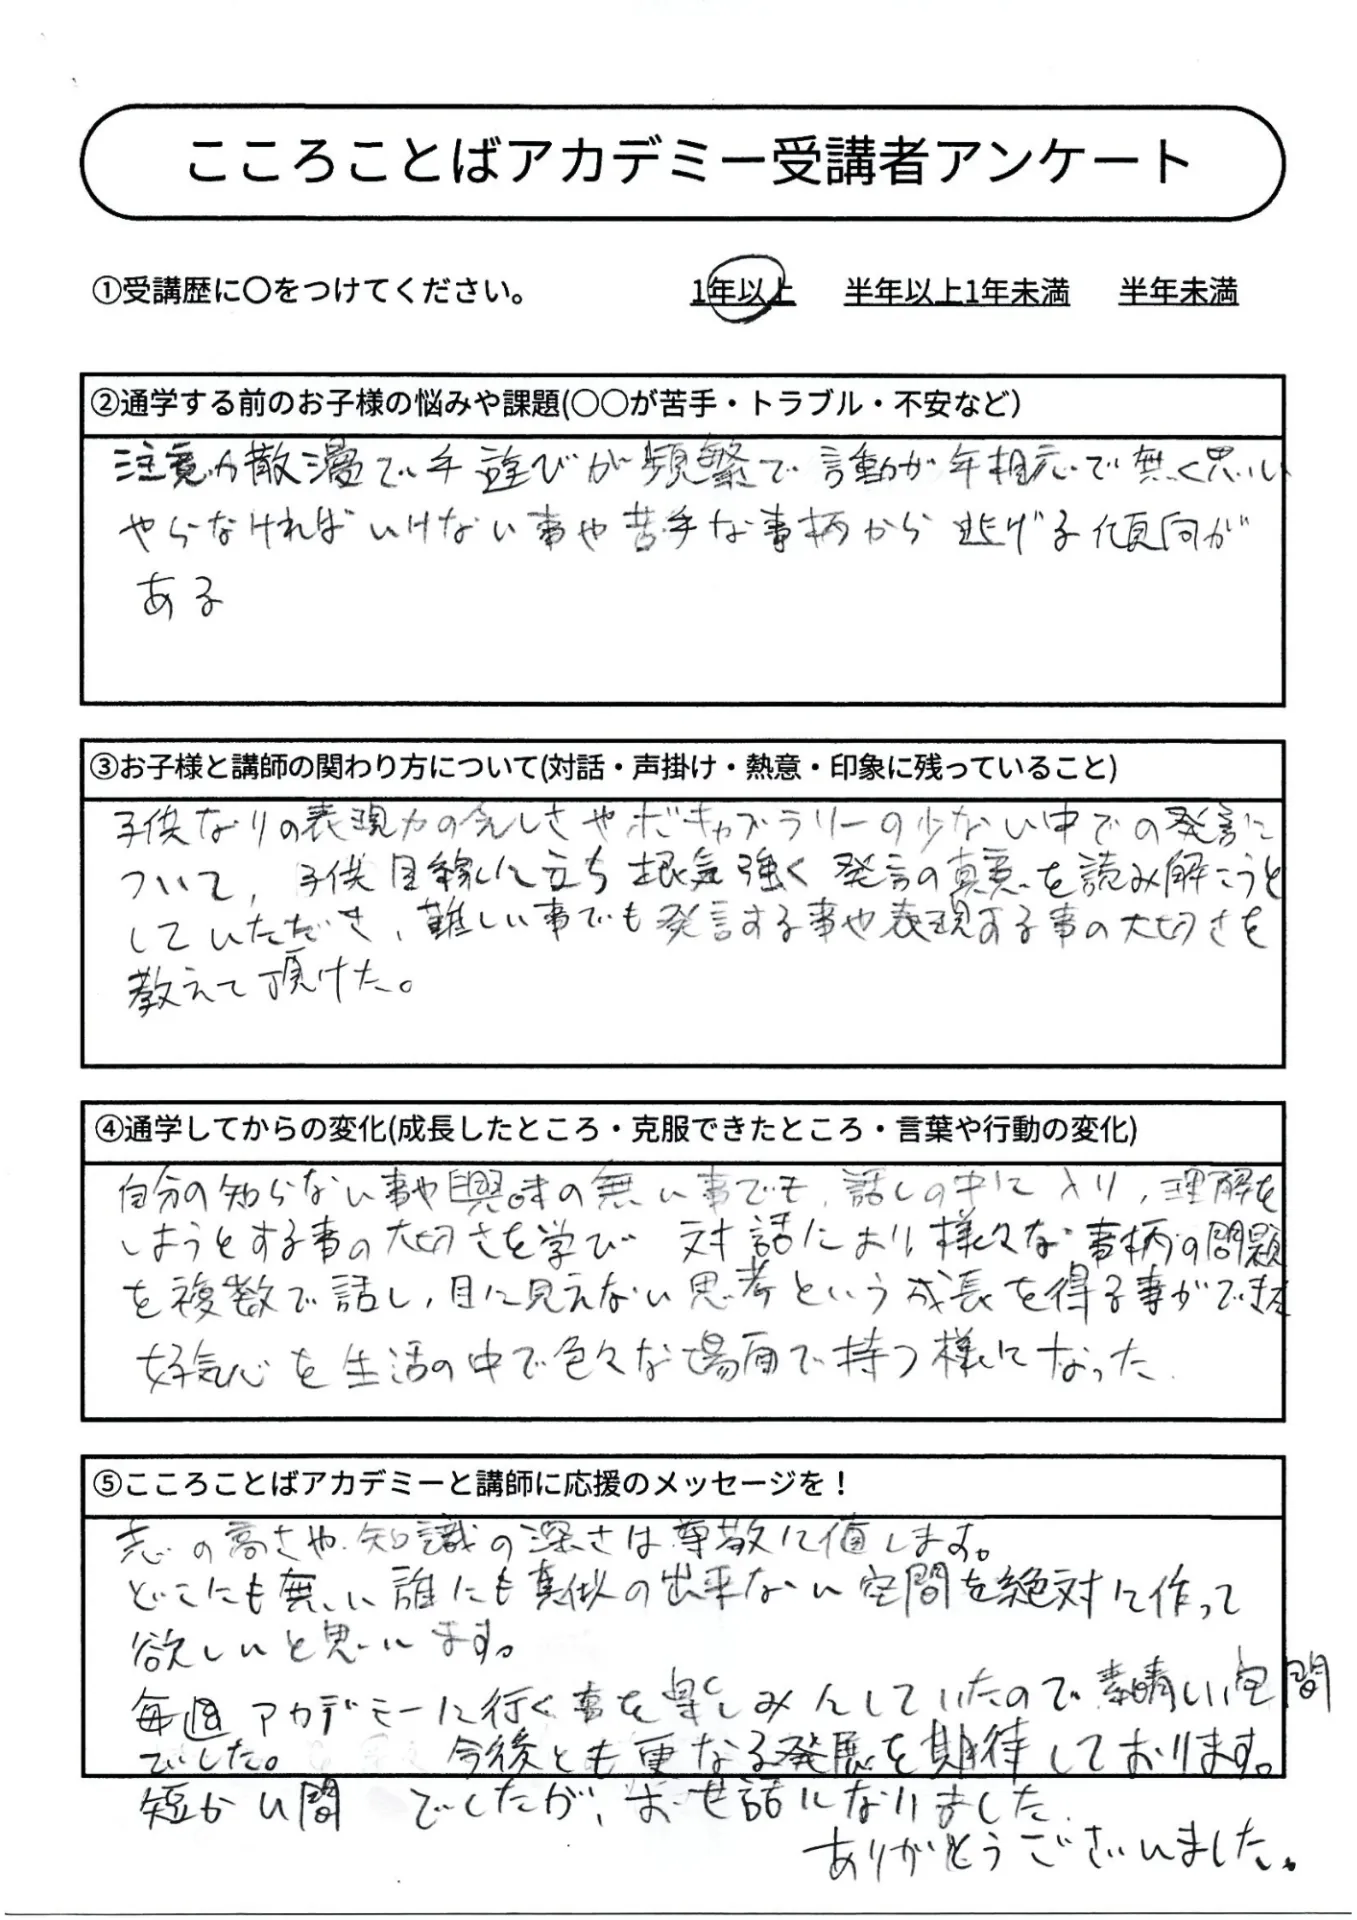 こころことばアカデミー受講者アンケート
①受講歴に〇をつけてください。 1年以上 半年以上1年未満 半年未満
②通学する前のお子様の悩みや課題(〇〇が苦手・トラブル・不安など)
注意力散漫で手遊びが頻繁で言動が年相応で無く思い
やらなければいけない事や苦手な事柄から逃げる傾向が
ある
③お子様と講師の関わり方について(対話・声掛け・熱意・印象に残っていること)
子供なりの表現力の乏しさやボキャブラリーの少ない中での発言に
ついて、子供目線に立ち根気強く発言の真意を読み解こうと
していただき、難しい事でも発言する事や表現する事の大切さを
教えて頂けた。
④通学してからの変化(成長したところ・克服できたところ・言葉や行動の変化)
自分の知らない事や興味の無い事でも、話しの中に入り、理解を
しようとする事の大切さを学び 対話により、様々な事柄の問題
を複数で話し、目に見えない思考という成長を得る事ができた
好気心を生活の中で色々な場面で持つ様になった.
⑤こころことばアカデミーと講師に応援のメッセージを！
志の高さや知識の深さは尊敬に値します。
どこにも無い誰にも真似の出来ない空間を絶対に作って
欲しいと思います。
毎週アカデミーに行く事を楽しみにしていたので素晴しい空間
でした。 今後とも更なる発展を期待しております。
短かい間 でしたが、お世話になりました.
ありがとうございました。